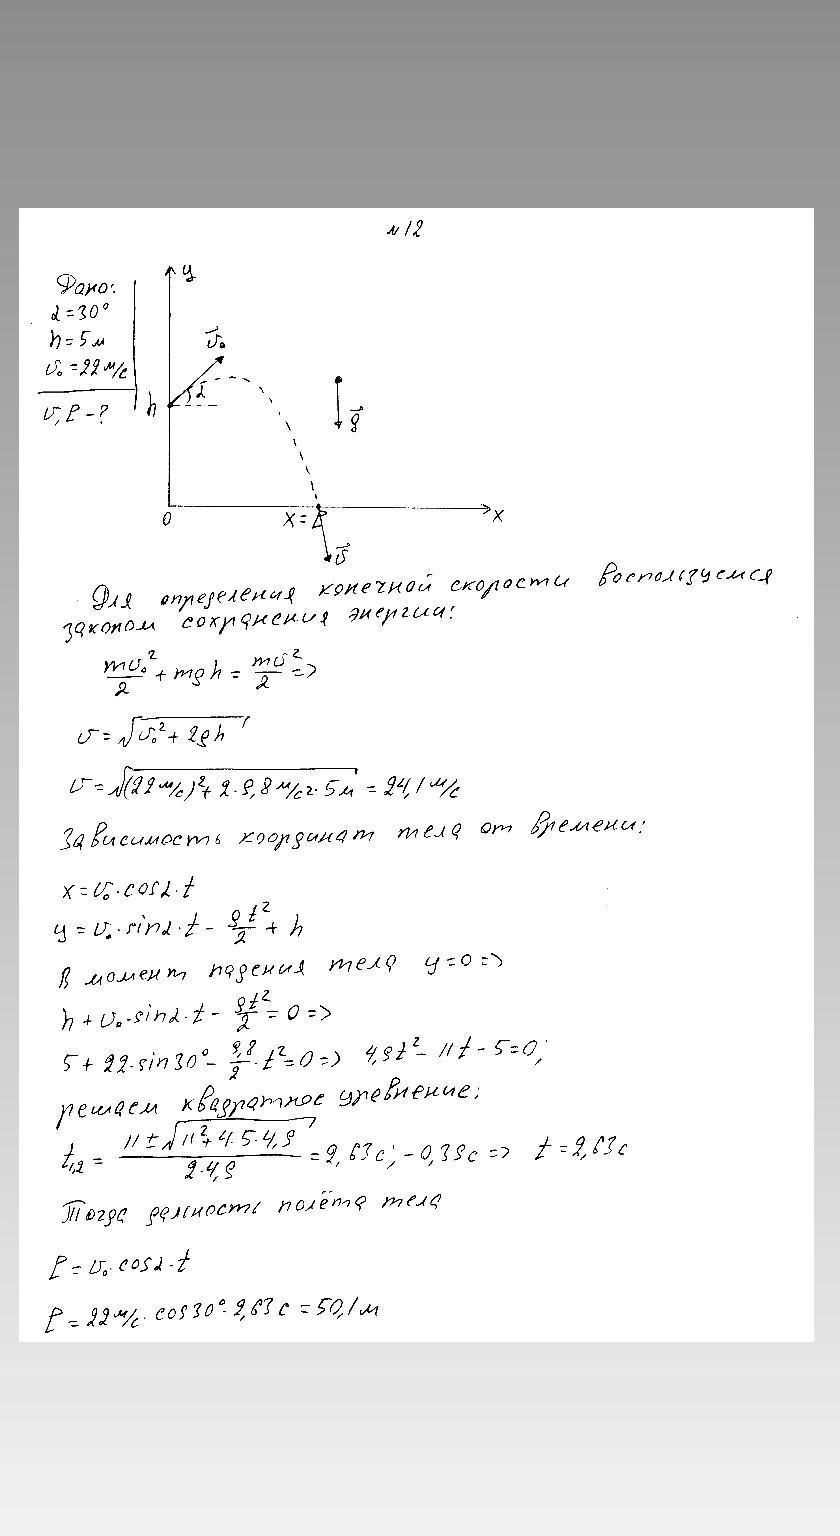 №12
Дано:
α=30°
h=5м
υ₀=22м/с
υ, ℓ-?
y
υ⃗₀
α
h
g⃗
0
x=ℓ
x
υ⃗
Для определения конечной скорости воспользуемся
законом сохранения энергии:
mυ₀²/2 + mgh = mυ²/2 =>
υ=√(υ₀²+2gh)
υ=√((22м/с)²+2·9,8м/с²·5м) = 24,1м/с
Зависимость координат тела от времени:
x=υ₀·cosα·t
y=υ₀·sinα·t - gt²/2 + h
В момент падения тела y=0=>
h+υ₀·sinα·t - gt²/2 = 0 =>
5+22·sin30°- 9,8/2·t²=0=> 4,9t²-11t-5=0;
решаем квадратное уревнение;
t₁,₂ = (11±√(11²+4·5·4,9))/(2·4,9) = 2,63с; -0,39с => t=2,63с
Тогда дальность полёта тела
ℓ=υ₀·cosα·t
ℓ=22м/с·cos30°·2,63с=50,1м